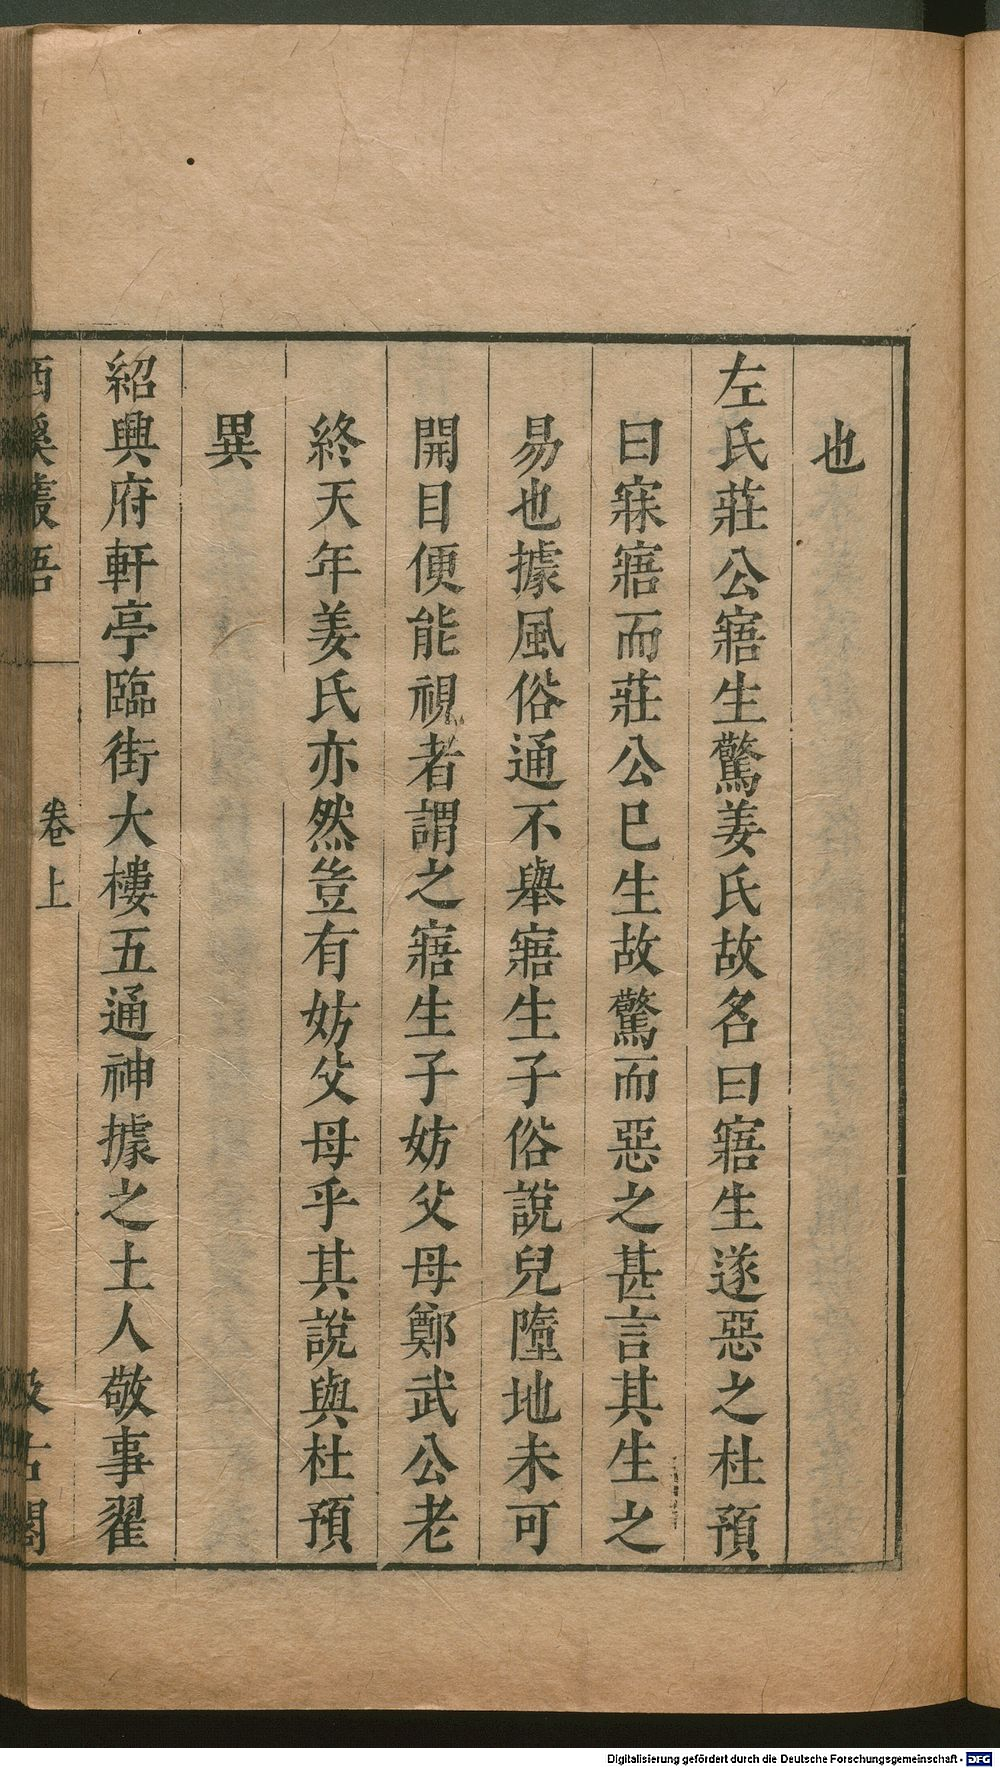 也
左氏莊公寤生驚姜氏故名曰寤生遂惡之杜預
曰寐寤而莊公巳生故驚而惡之甚言其生之
易也據風俗通不舉寤生子俗說兒墮地未可
開目便能視者謂之寤生子妨父母鄭武公老
終天年姜氏亦然豈有妨父母乎其說與杜預
異
紹興府軒亭臨街大樓五通神據之土人敬事翟
西溪叢語
卷上
汲古閣
Digitalisierung gefördert durch die Deutsche Forschungsgemeinschaft - DFG